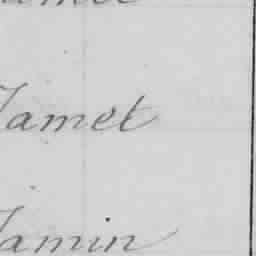 Jamet
Jamin